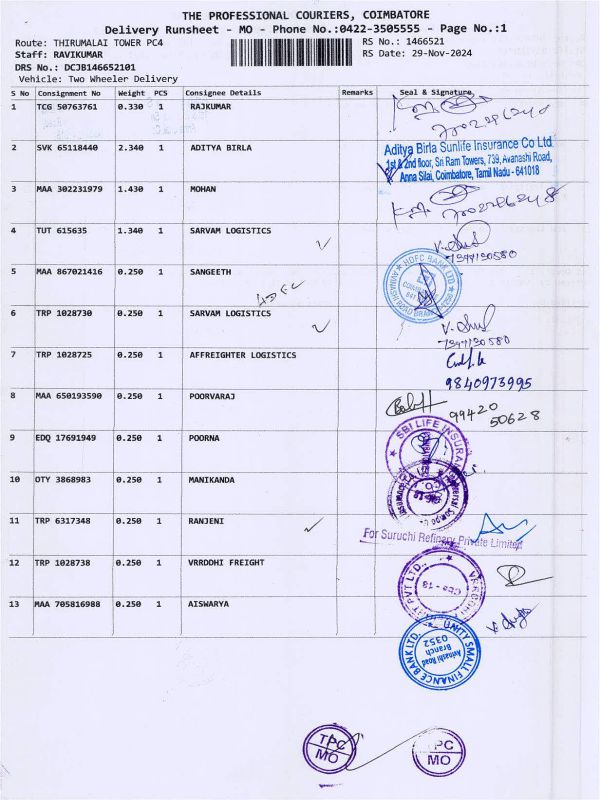 THE PROFESSIONAL COURIERS, COIMBATORE
Delivery Runsheet - MO - Phone No.:0422-3505555 - Page No.:1
Route: THIRUMALAI TOWER PC4
RS No.: 1466521
Staff: RAVIKUMAR
RS Date: 29-Nov-2024
DRS No.: DCJB146652101
Vehicle: Two Wheeler Delivery
S No Consignment No Weight PCS Consignee Details Remarks Seal & Signature
1 TCG 50763761 0.330 1 RAJKUMAR
2 SVK 65118440 2.340 1 ADITYA BIRLA
Aditya Birla Sunlife Insurance Co Ltd
1st & 2nd floor, Sri Ram Towers, 739, Avanashi Road,
Anna Silai, Coimbatore, Tamil Nadu - 641018
3 MAA 302231979 1.430 1 MOHAN
4 TUT 615635 1.340 1 SARVAM LOGISTICS
7397130580
5 MAA 867021416 0.250 1 SANGEETH
HDFC
HDFC BANK LTD
6 TRP 1028730 0.250 1 SARVAM LOGISTICS
7397130580
7 TRP 1028725 0.250 1 AFFREIGHTER LOGISTICS
9840973995
8 MAA 650193590 0.250 1 POORVARAJ
99420
50628
9 EDQ 17691949 0.250 1 POORNA
SBI LIFE INSURA
10 OTY 3868983 0.250 1 MANIKANDA
11 TRP 6317348 0.250 1 RANJENI
For Suruchi Refinary Private Limited
12 TRP 1028738 0.250 1 VRRDDHI FREIGHT
Cbe - 18
13 MAA 705816988 0.250 1 AISWARYA
UNITY SMALL FINANCE BANK LTD.
Avinashi Road
Branch
0352
TPC
MO
TPC
MO